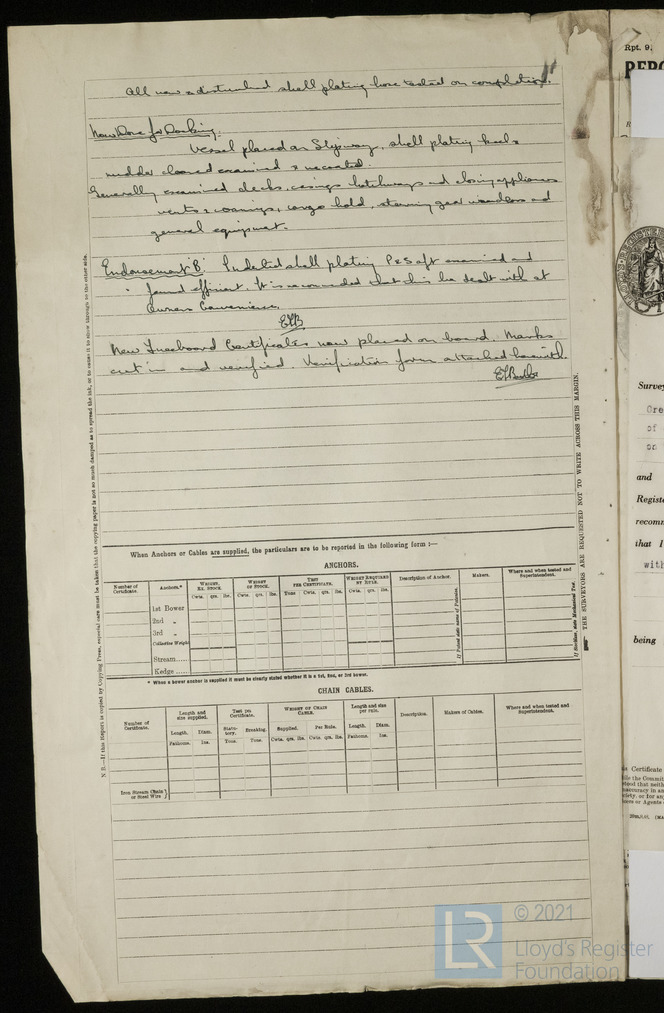 All new & disturbed shell plating hose tested on completion.
Now Done for Docking:
Vessel placed on Slipway, shell plating keel &
rudder cleaned examined & recoated.
Generally examined decks, casings hatchways and closing appliances
vents & coamings, cargo hold, steering gear windlass and
general equipment.
Endorsement B: Indented shell plating P&S aft examined and
found efficient. It is recommended that this be dealt with at
Owners Convenience.
New Freeboard Certificates now placed on board. Marks
cut in and verified. Verification form attached herewith.
When Anchors or Cables are supplied, the particulars are to be reported in the following form :—
ANCHORS.
Number of Certificate. Anchors.* WEIGHT, EX. STOCK. WEIGHT OF STOCK. TEST PER CERTIFICATE. WEIGHT REQUIRED BY RULE. Description of Anchor. Makers. Where and when tested and Superintendent.
Cwts. qrs. lbs. Cwts. qrs. lbs. Tons Cwts. qrs. lbs. Cwts. qrs. lbs.
1st Bower
2nd „
3rd „
Collective Weight
Stream......
Kedge ......
* When a bower anchor is supplied it must be clearly stated whether it is a 1st, 2nd, or 3rd bower.
CHAIN CABLES.
Number of Certificate. Length and size supplied. Test per Certificate. WEIGHT OF CHAIN CABLE. Length and size per rule. Description. Makers of Cables. Where and when tested and Superintendent.
Length. Diam. Statutory. Breaking. Supplied. Per Rule. Length. Diam.
Fathoms. Ins. Tons. Tons. Cwts. qrs. lbs. Cwts. qrs. lbs. Fathoms. Ins.
Iron Stream Chain or Steel Wire }
N.B.—If this Report is copied by Copying Press, especial care must be taken that the copying paper is not so much damped as to spread the ink, or to cause it to show through on the other side.
THE SURVEYORS ARE REQUESTED NOT TO WRITE ACROSS THIS MARGIN.
Rpt. 9.
Survey
Ore
of
on
and
Regist
recomm
that I
with
being
Certificate
LR
© 2021
Lloyd's Register
Foundation